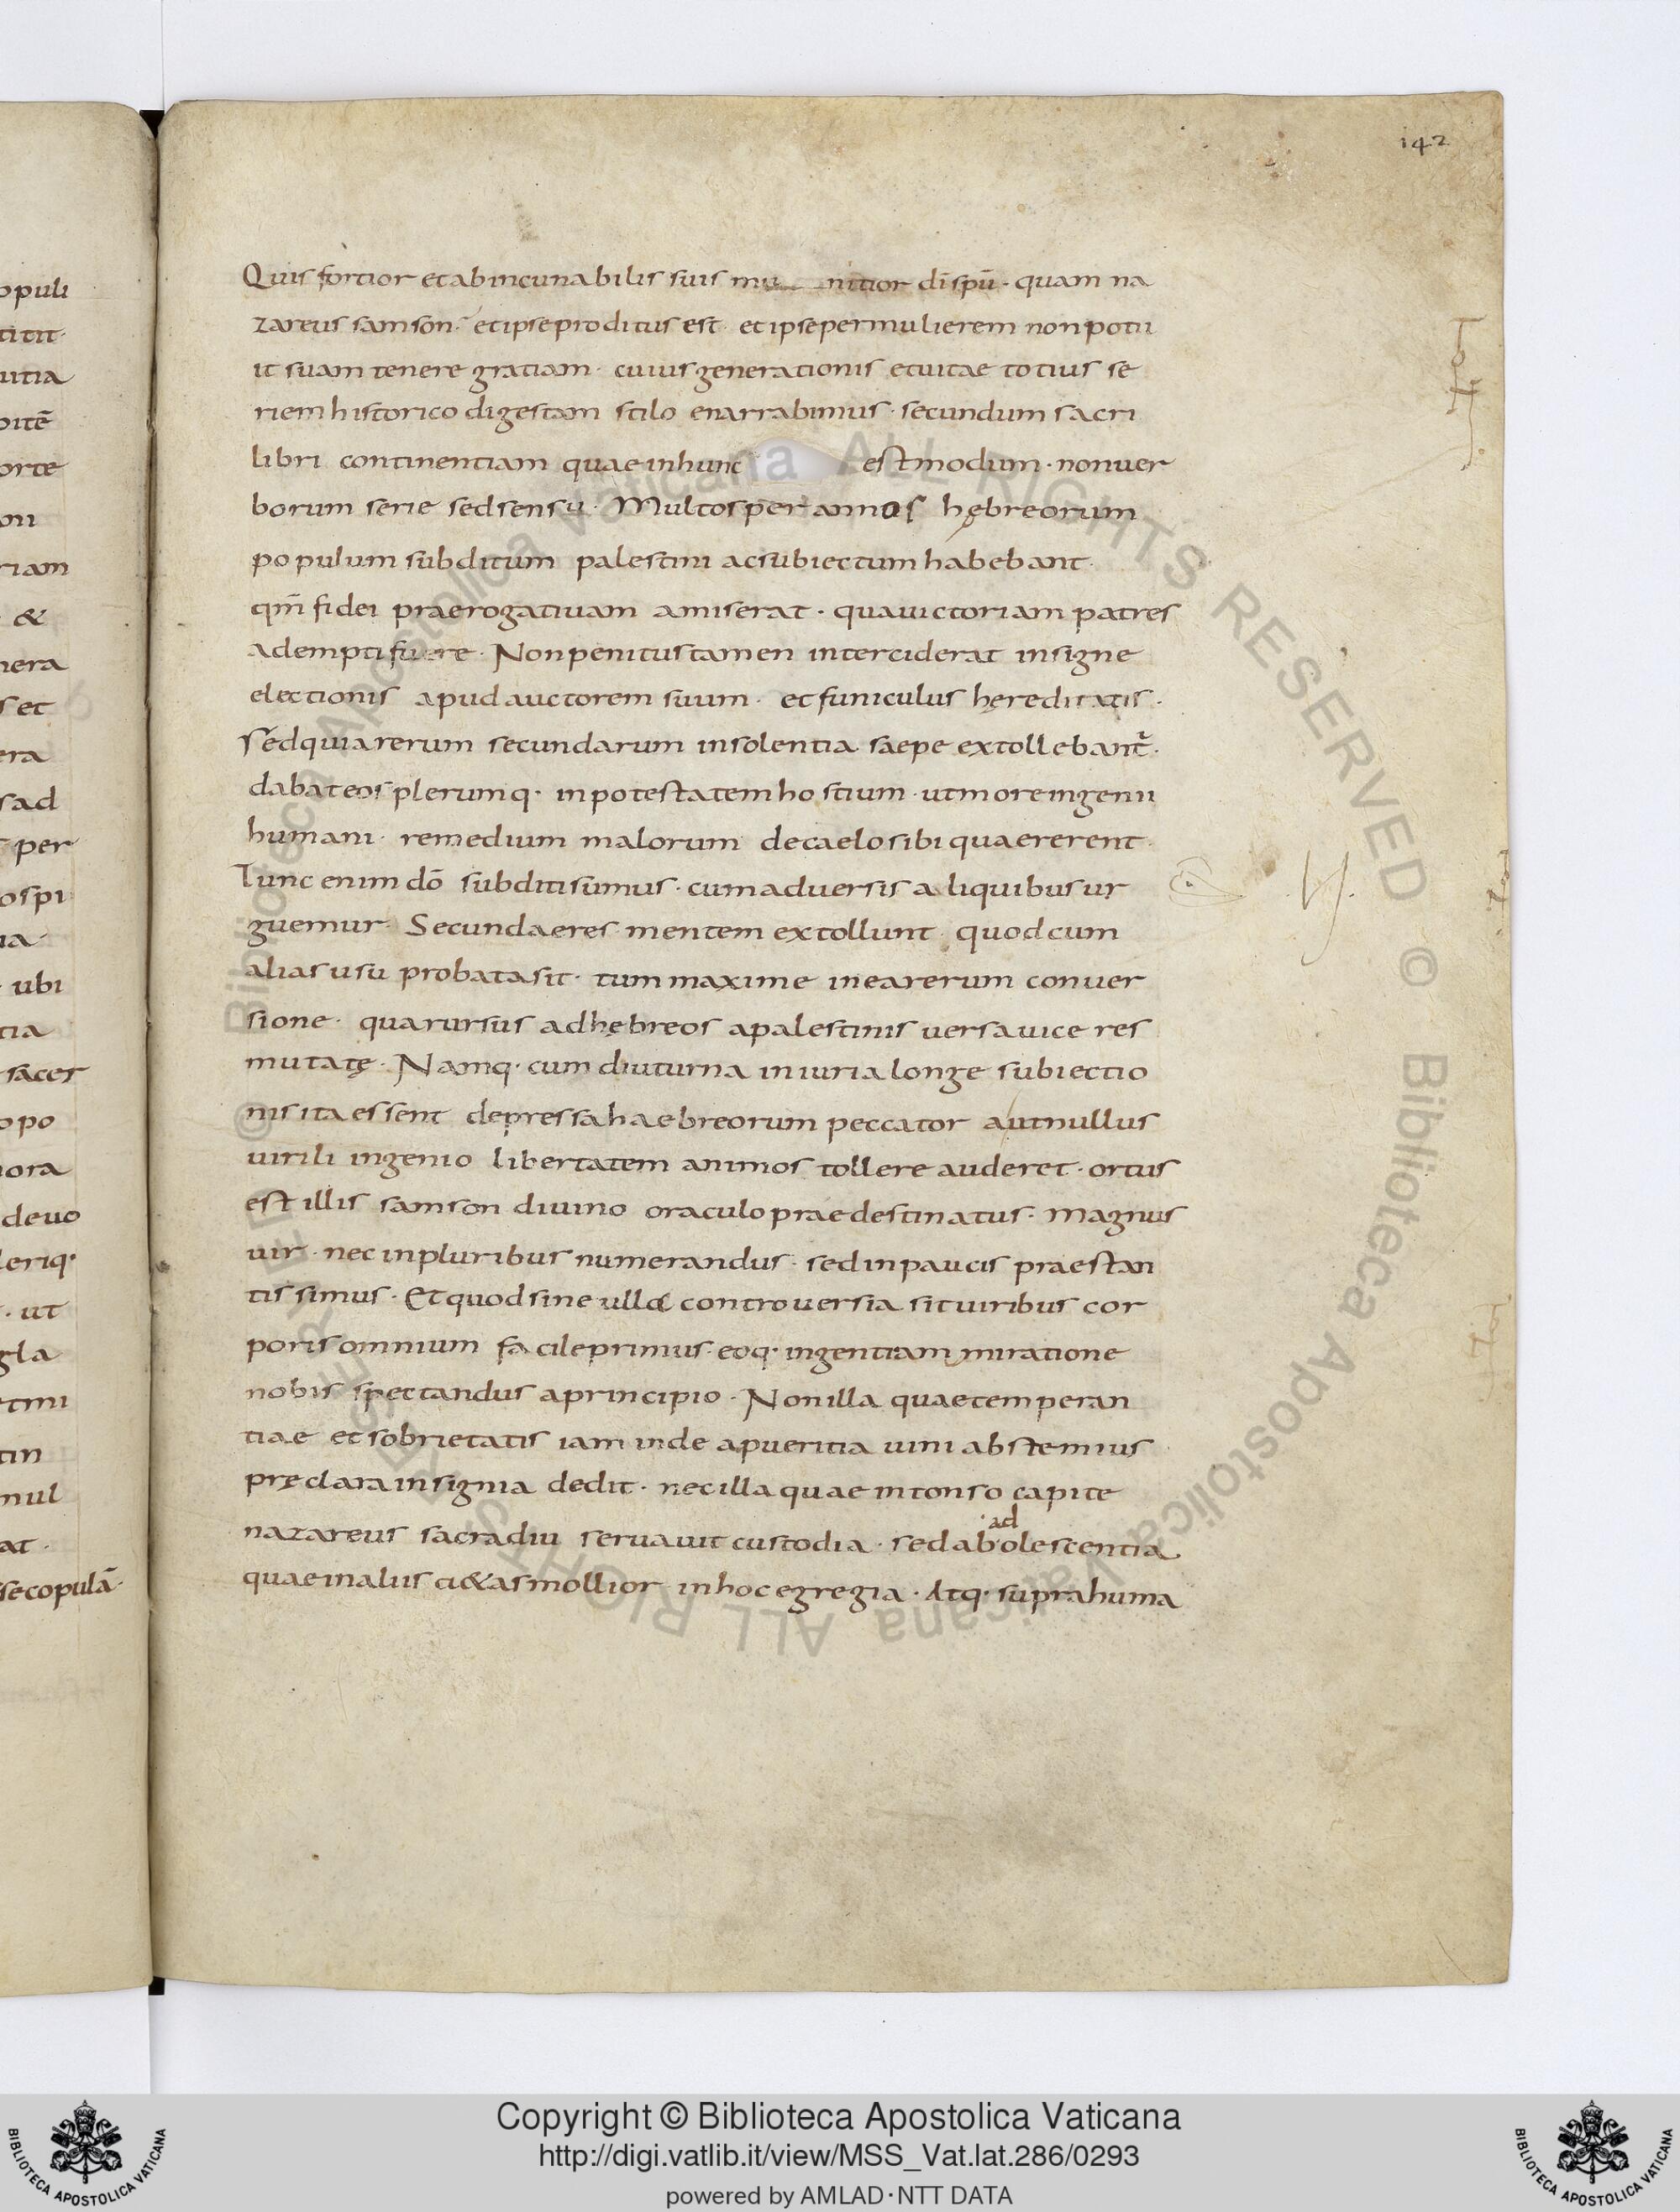 142
Quis fortior et ab incunabilis suis mu nitior di spū · quam na
zareus samson · et ipse proditus est · et ipse per mulierem non potu
it suam tenere gratiam · cuius generationis et uitae totius se
riem historico digestam stilo enarrabimus · secundum sacri
libri continentiam quae in hunc est modum · non uer
borum serie sed sensu · Multos per annos hębreorum
populum subditum palestini ac subiectum habebant ·
qm̄ fidei praerogatiuam amiserat · qua uictoriam patres
adempti fuere · Non penitus tamen interciderat insigne
electionis apud auctorem suum · et funiculus hęreditatis ·
Sed quia rerum secundarum insolentia saepe extollebant̄ ·
dabat eos plerumq· in potestatem hostium · ut more ingenii
humani · remedium malorum de caelo sibi quaererent ·
Tunc enim dō subditi sumus · cum aduersis aliquibus ur
guemur · Secundae res mentem extollunt · quod cum
alias usu probata sit · tum maxime in ea rerum conuer
sione · qua rursus ad hębreos a palestinis uersa uice res
mutatę · Namq· cum diuturna iniuria longe subiectio
nis ita essent depressa haebreorum peccator aut nullus
uirili ingenio libertatem animos tollere auderet · ortus
est illis samson diuino oraculo praedestinatus · magnus
uir · nec in pluribus numerandus · sed in paucis praestan
tissimus · Et quod sine ulla controuersia sit uiribus cor
poris omnium facile primus · eoq· ingenti ammiratione
nobis spectandus a principio · Non illa quae temperan
tiae et sobrietatis iam inde a pueritia uini abstemius
pręclara insignia dedit · nec illa quae intonso capite
nazareus sacra diu seruauit custodia · sed ab olescentia
ad
quae in aliis ci&as mollior in hoc egregia · Atq· supra huma
opuli
titit ·
utia
orte
riam
&
nera
s et
era
s ad
per
ospi
ubi
tia
sacer
opo
deuo
leriq·
· ut
gla
tin
mul
at ·
se copulā ·
© Biblioteca Apostolica Vaticana ALL RIGHTS RESERVED © Biblioteca Apostolica Vaticana ALL RIGHTS RESERVED
Copyright © Biblioteca Apostolica Vaticana
http://digi.vatlib.it/view/MSS_Vat.lat.286/0293
powered by AMLAD·NTT DATA
BIBLIOTECA APOSTOLICA VATICANA
BIBLIOTECA APOSTOLICA VATICANA